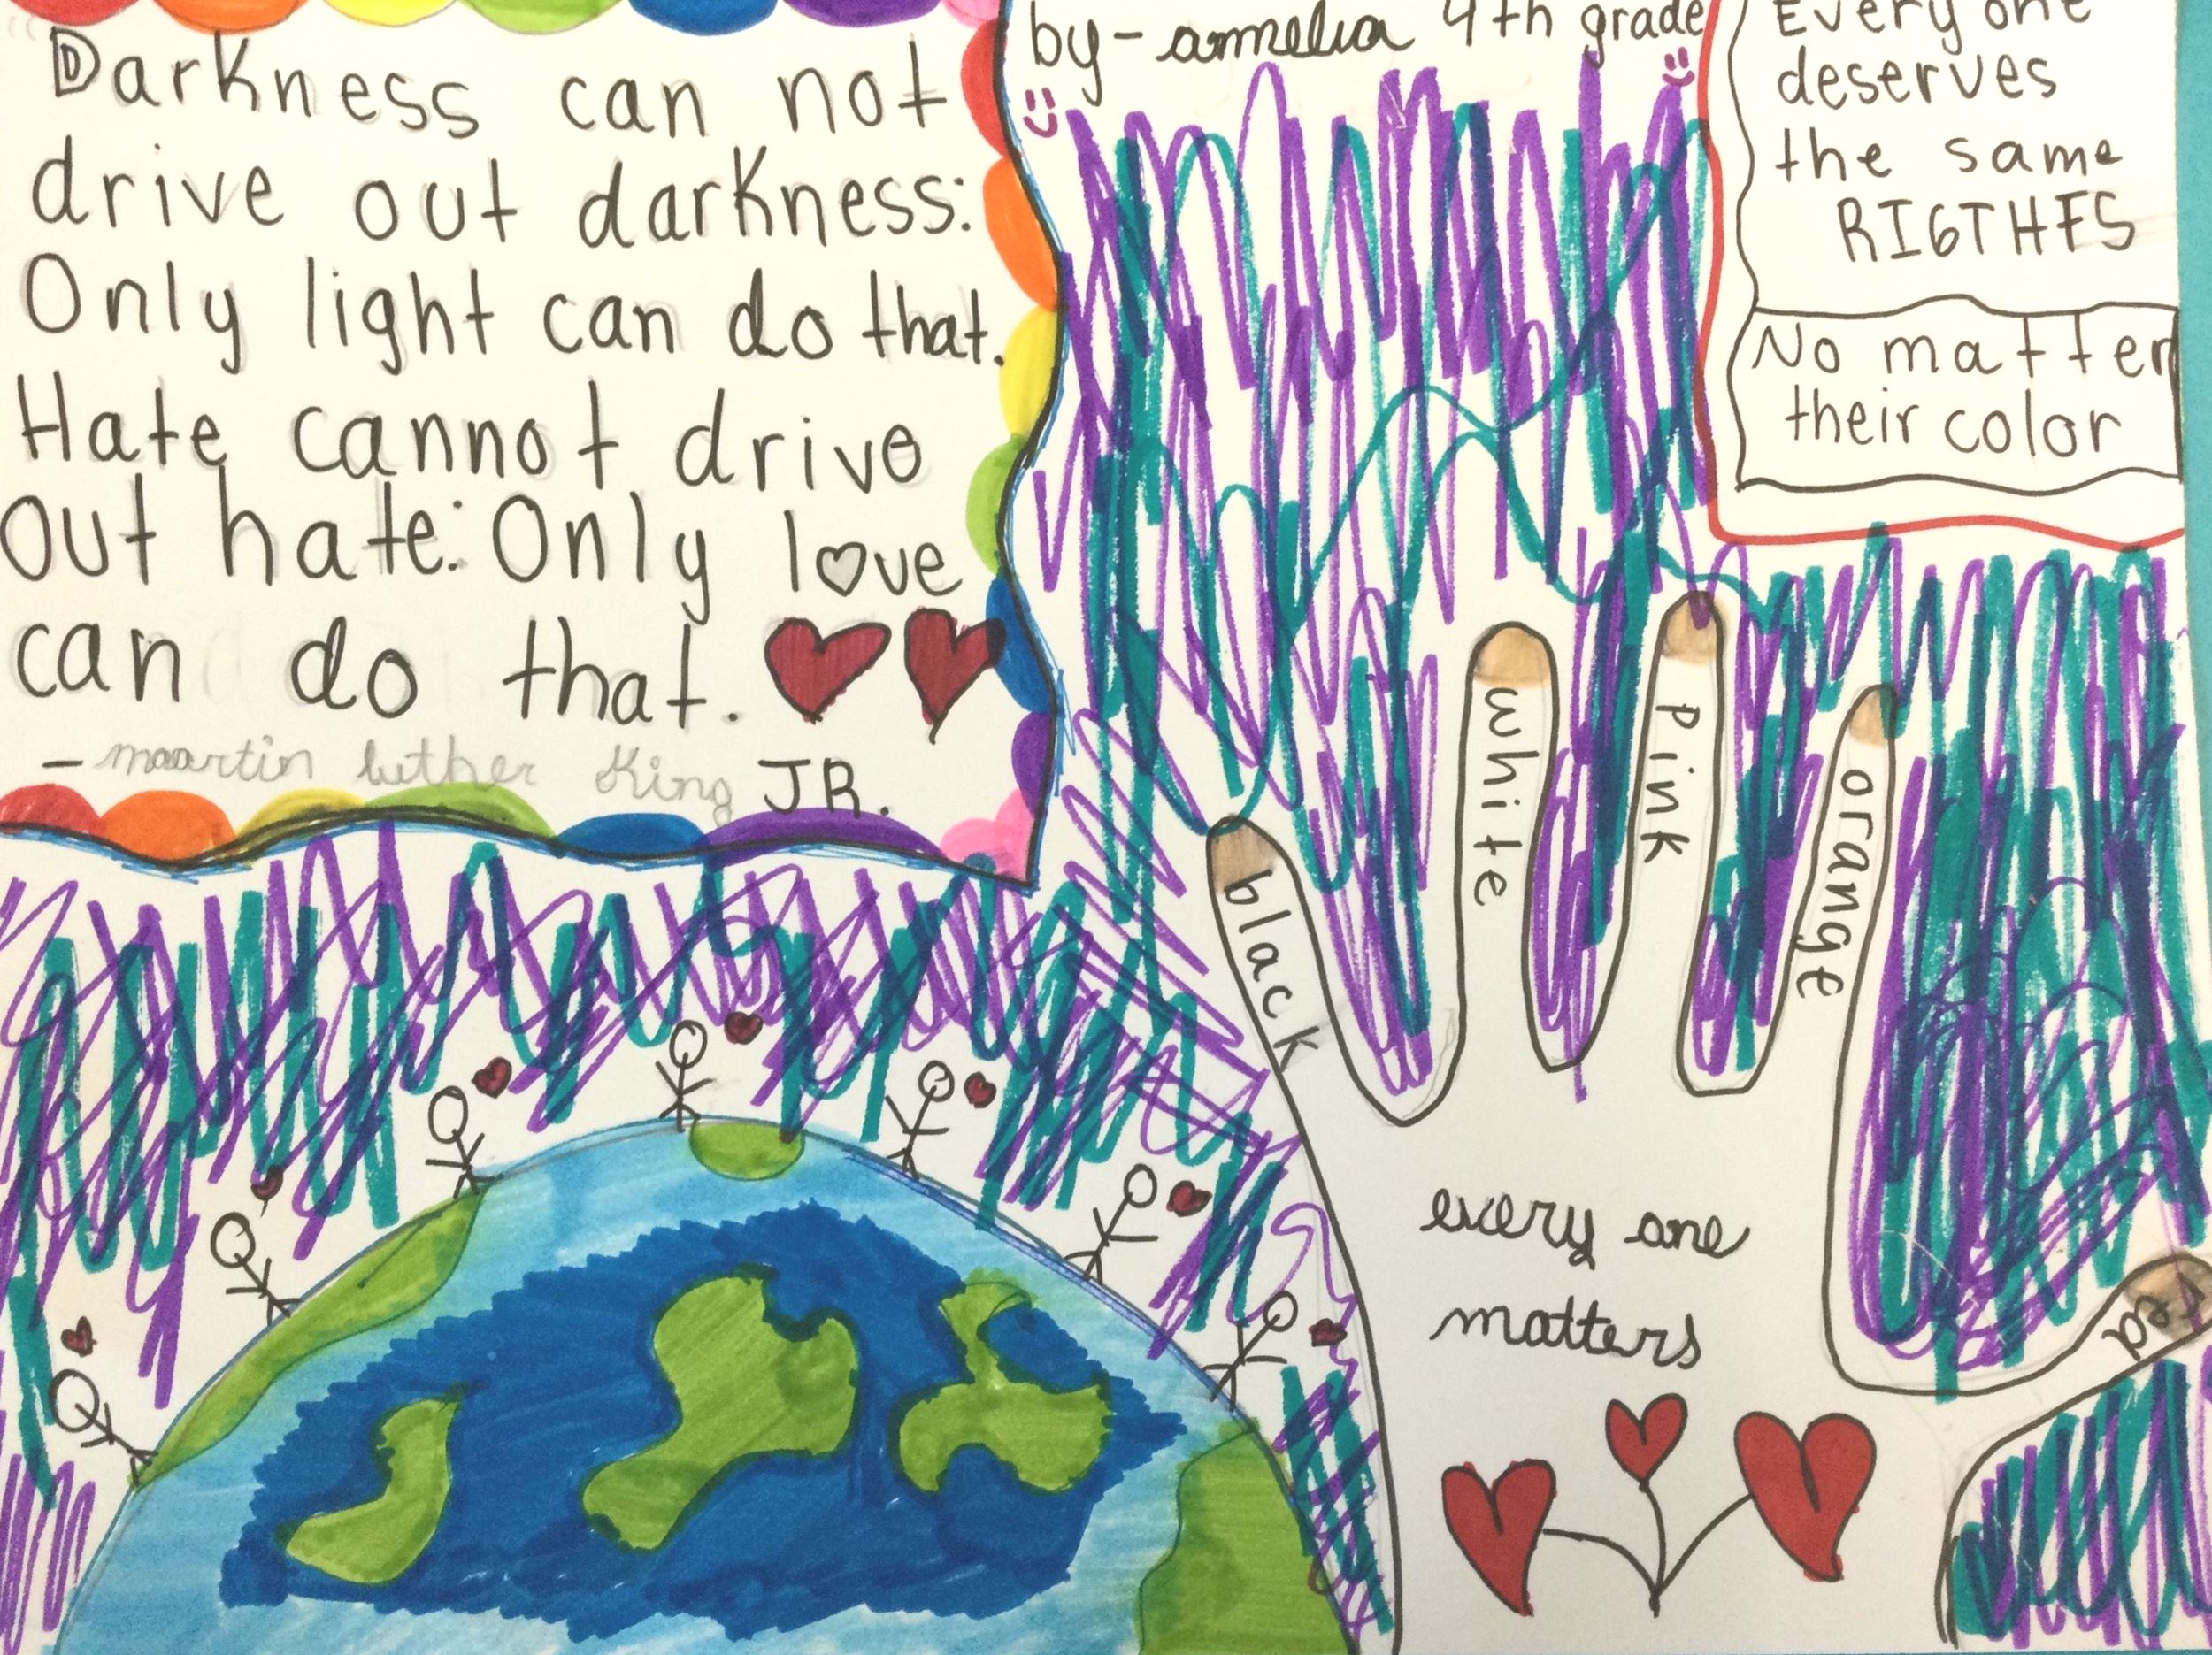 Darkness can not
drive out darkness:
Only light can do that.
Hate cannot drive
out hate: Only love
can do that.
- maartin luther King JR.
by - ammelia 4th grade
Every one
deserves
the same
RIGTHFS
No matter
their color
black
white
pink
orange
red
every one
matters